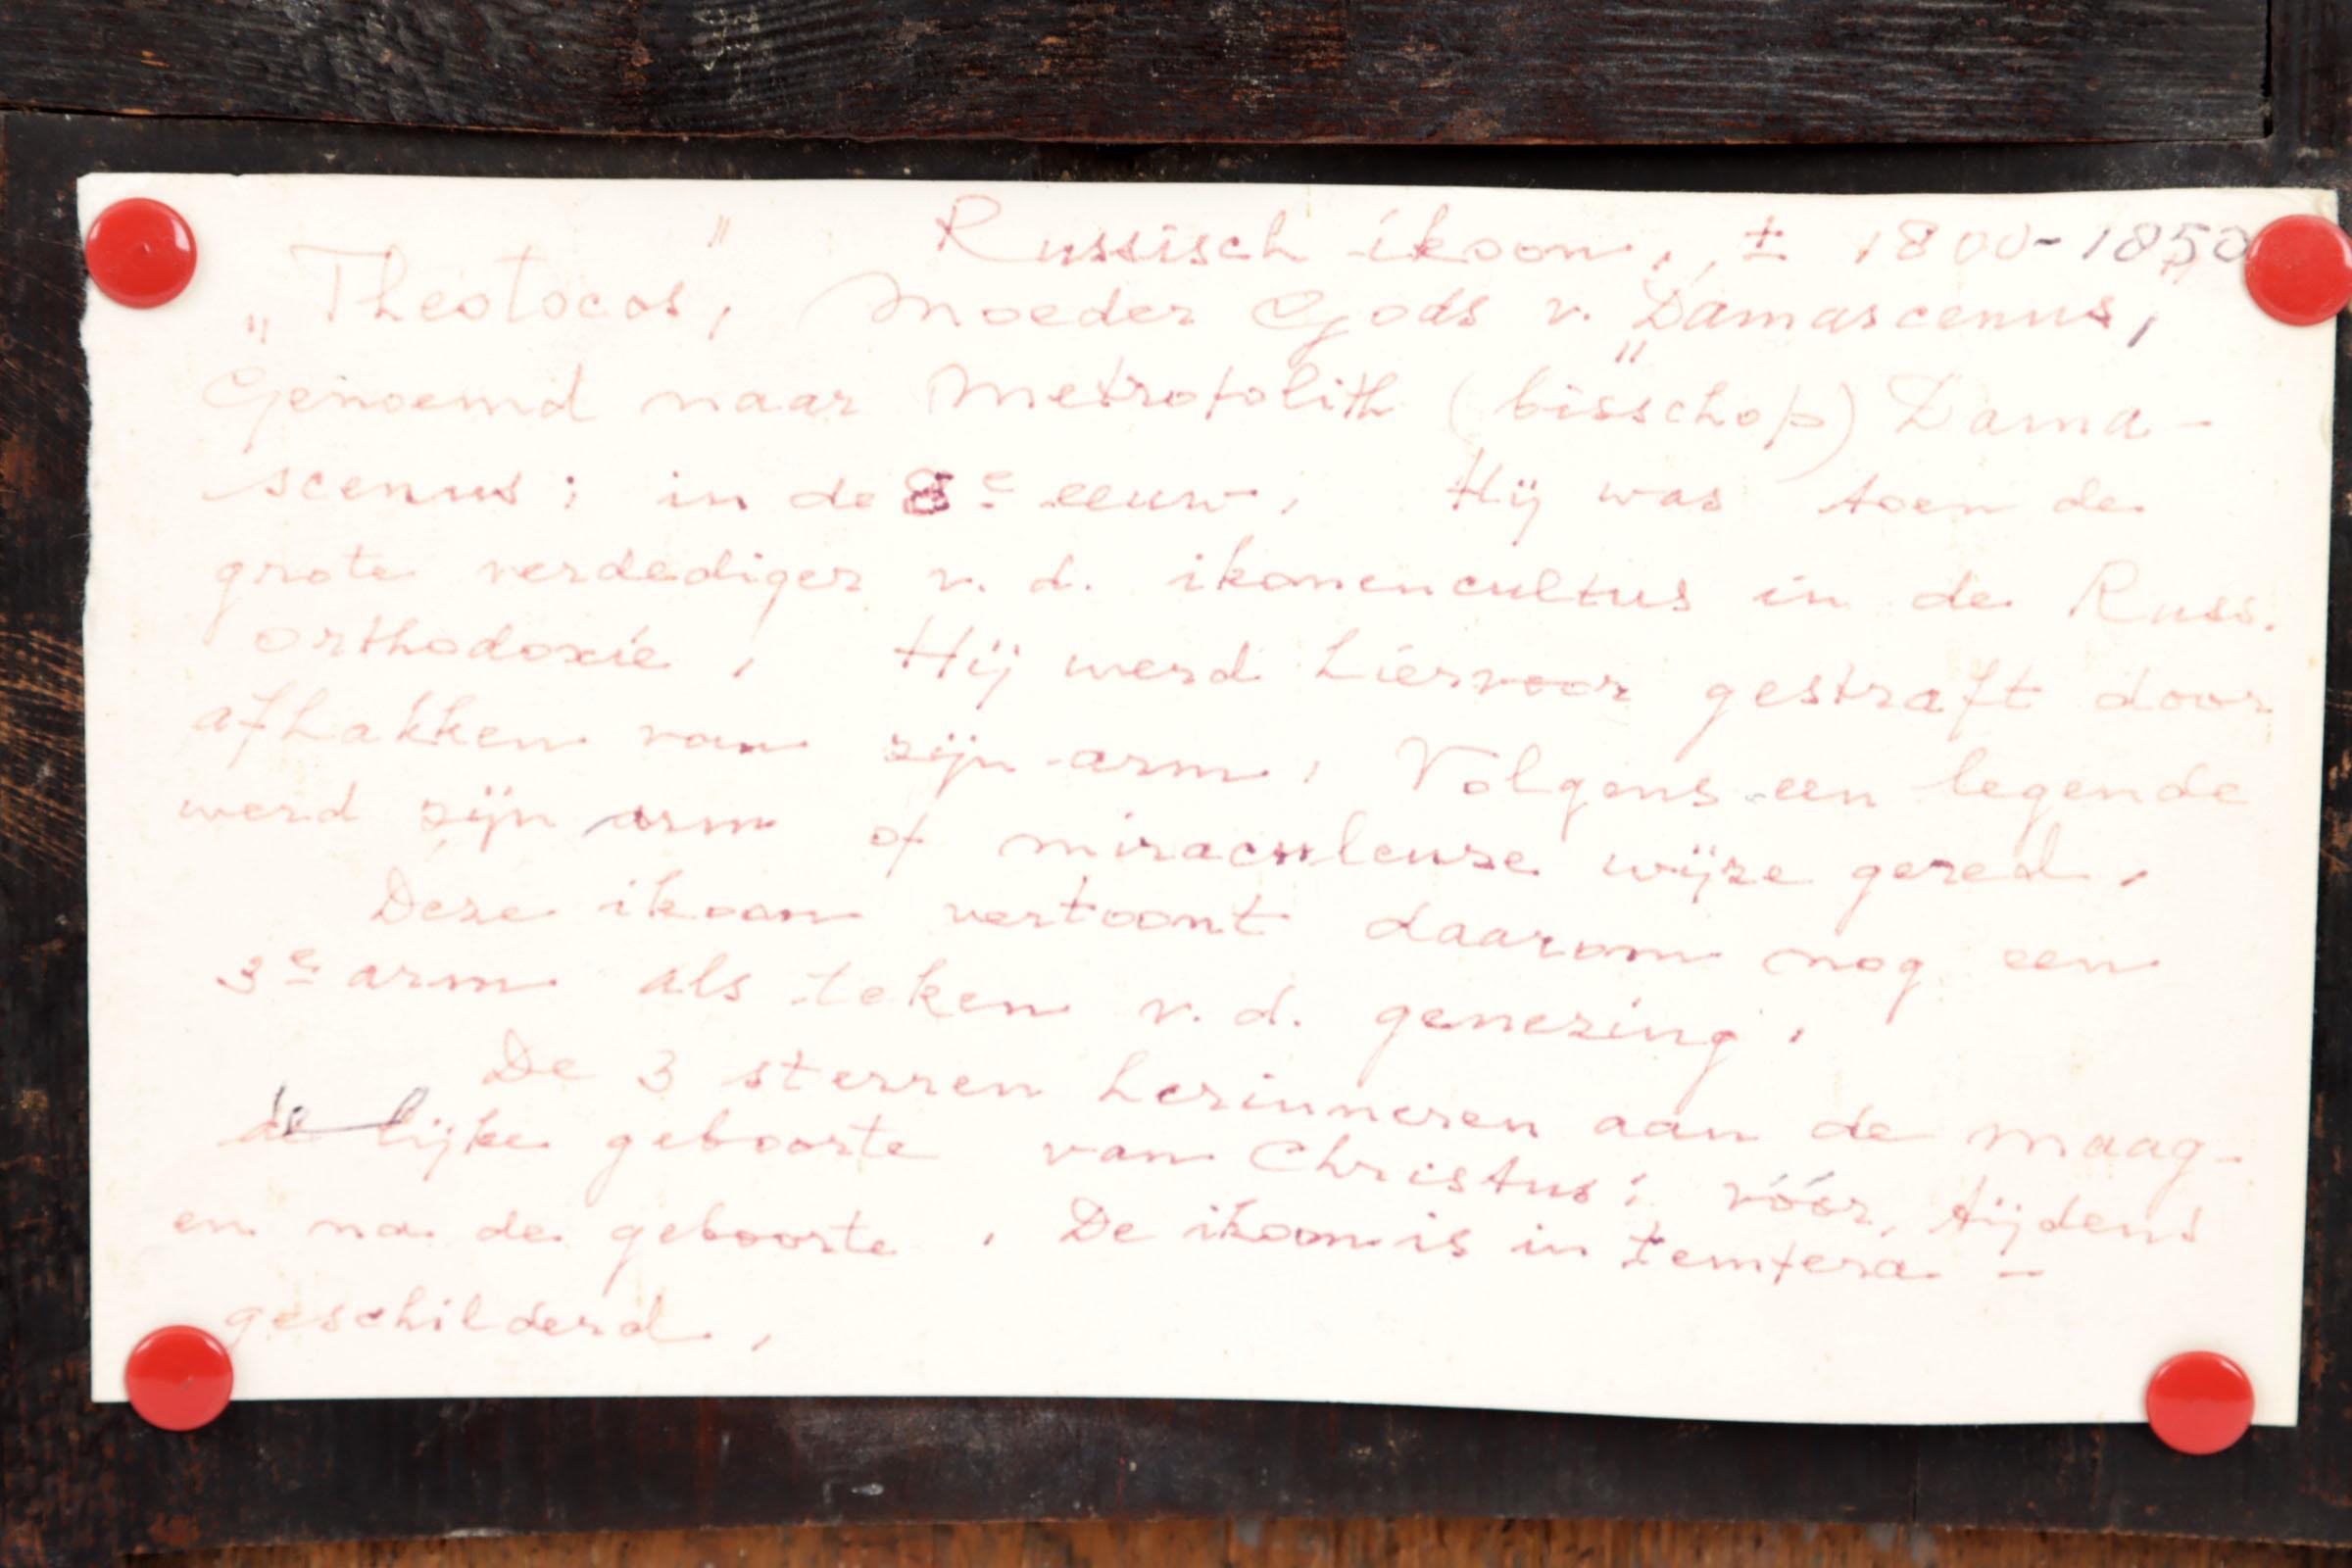 Russisch ikoon, ± 1800-1850
„Theotocos", Moeder Gods v. „Damascenus",
Genoemd naar Metropolith (bisschop) Dama-
scenus; in de 8e eeuw. Hij was toen de
grote verdediger v. d. ikonencultus in de Russ.
orthodoxie. Hij werd hiervoor gestraft door
afhakken van zijn arm. Volgens een legende
werd zijn arm of miraculeuze wijze gered.
Deze ikoon vertoont daarom nog een
3e arm als teken v. d. genezing.
De 3 sterren herinneren aan de maag-
delijke geboorte van Christus: vóór, tijdens
en na de geboorte. De ikoon is in tempera -
geschilderd.